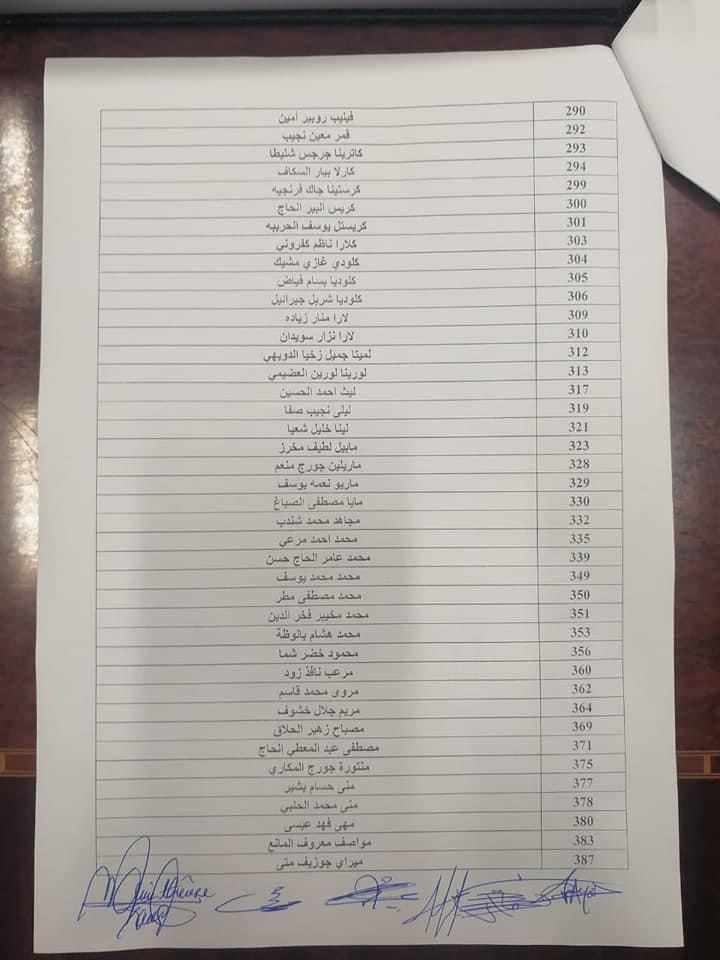 290 فيليب روبير امين
292 قمر معين نجيب
293 كاترينا جرجس شليطا
294 كارلا بيار السكاف
299 كرستينا جاك فرنجيه
300 كريس البير الحاج
301 كريستل يوسف الحريبه
303 كلارا ناظم كفروني
304 كلودي غازي مشيك
305 كلوديا بسام فياض
306 كلوديا شربل جبرائيل
309 لارا منار زياده
310 لارا نزار سويدان
312 لميتا جميل زخيا الدويهي
313 لورينا لورين العضيمي
317 ليث احمد الحسين
319 ليلى نجيب صفا
321 لينا خليل شعيا
323 مابيل لطيف مخرز
328 ماريلين جورج منعم
329 ماريو نعمه يوسف
330 مايا مصطفى الصباغ
332 مجاهد محمد شندب
335 محمد احمد مرعي
339 محمد عامر الحاج حسن
349 محمد محمد يوسف
350 محمد مصطفى مطر
351 محمد مخيبر فخر الدين
353 محمد هشام بالوظة
356 محمود خضر شما
360 مرعب نافذ زود
362 مروى محمد قاسم
364 مريم جلال خشوف
369 مصباح زهير الحلاق
371 مصطفى عبد المعطي الحاج
375 منتورة جورج المكاري
377 منى حسام بشير
378 منى محمد الحلبي
380 مهى فهد عيسى
383 مواصف معروف المانع
387 ميراي جوزيف متى